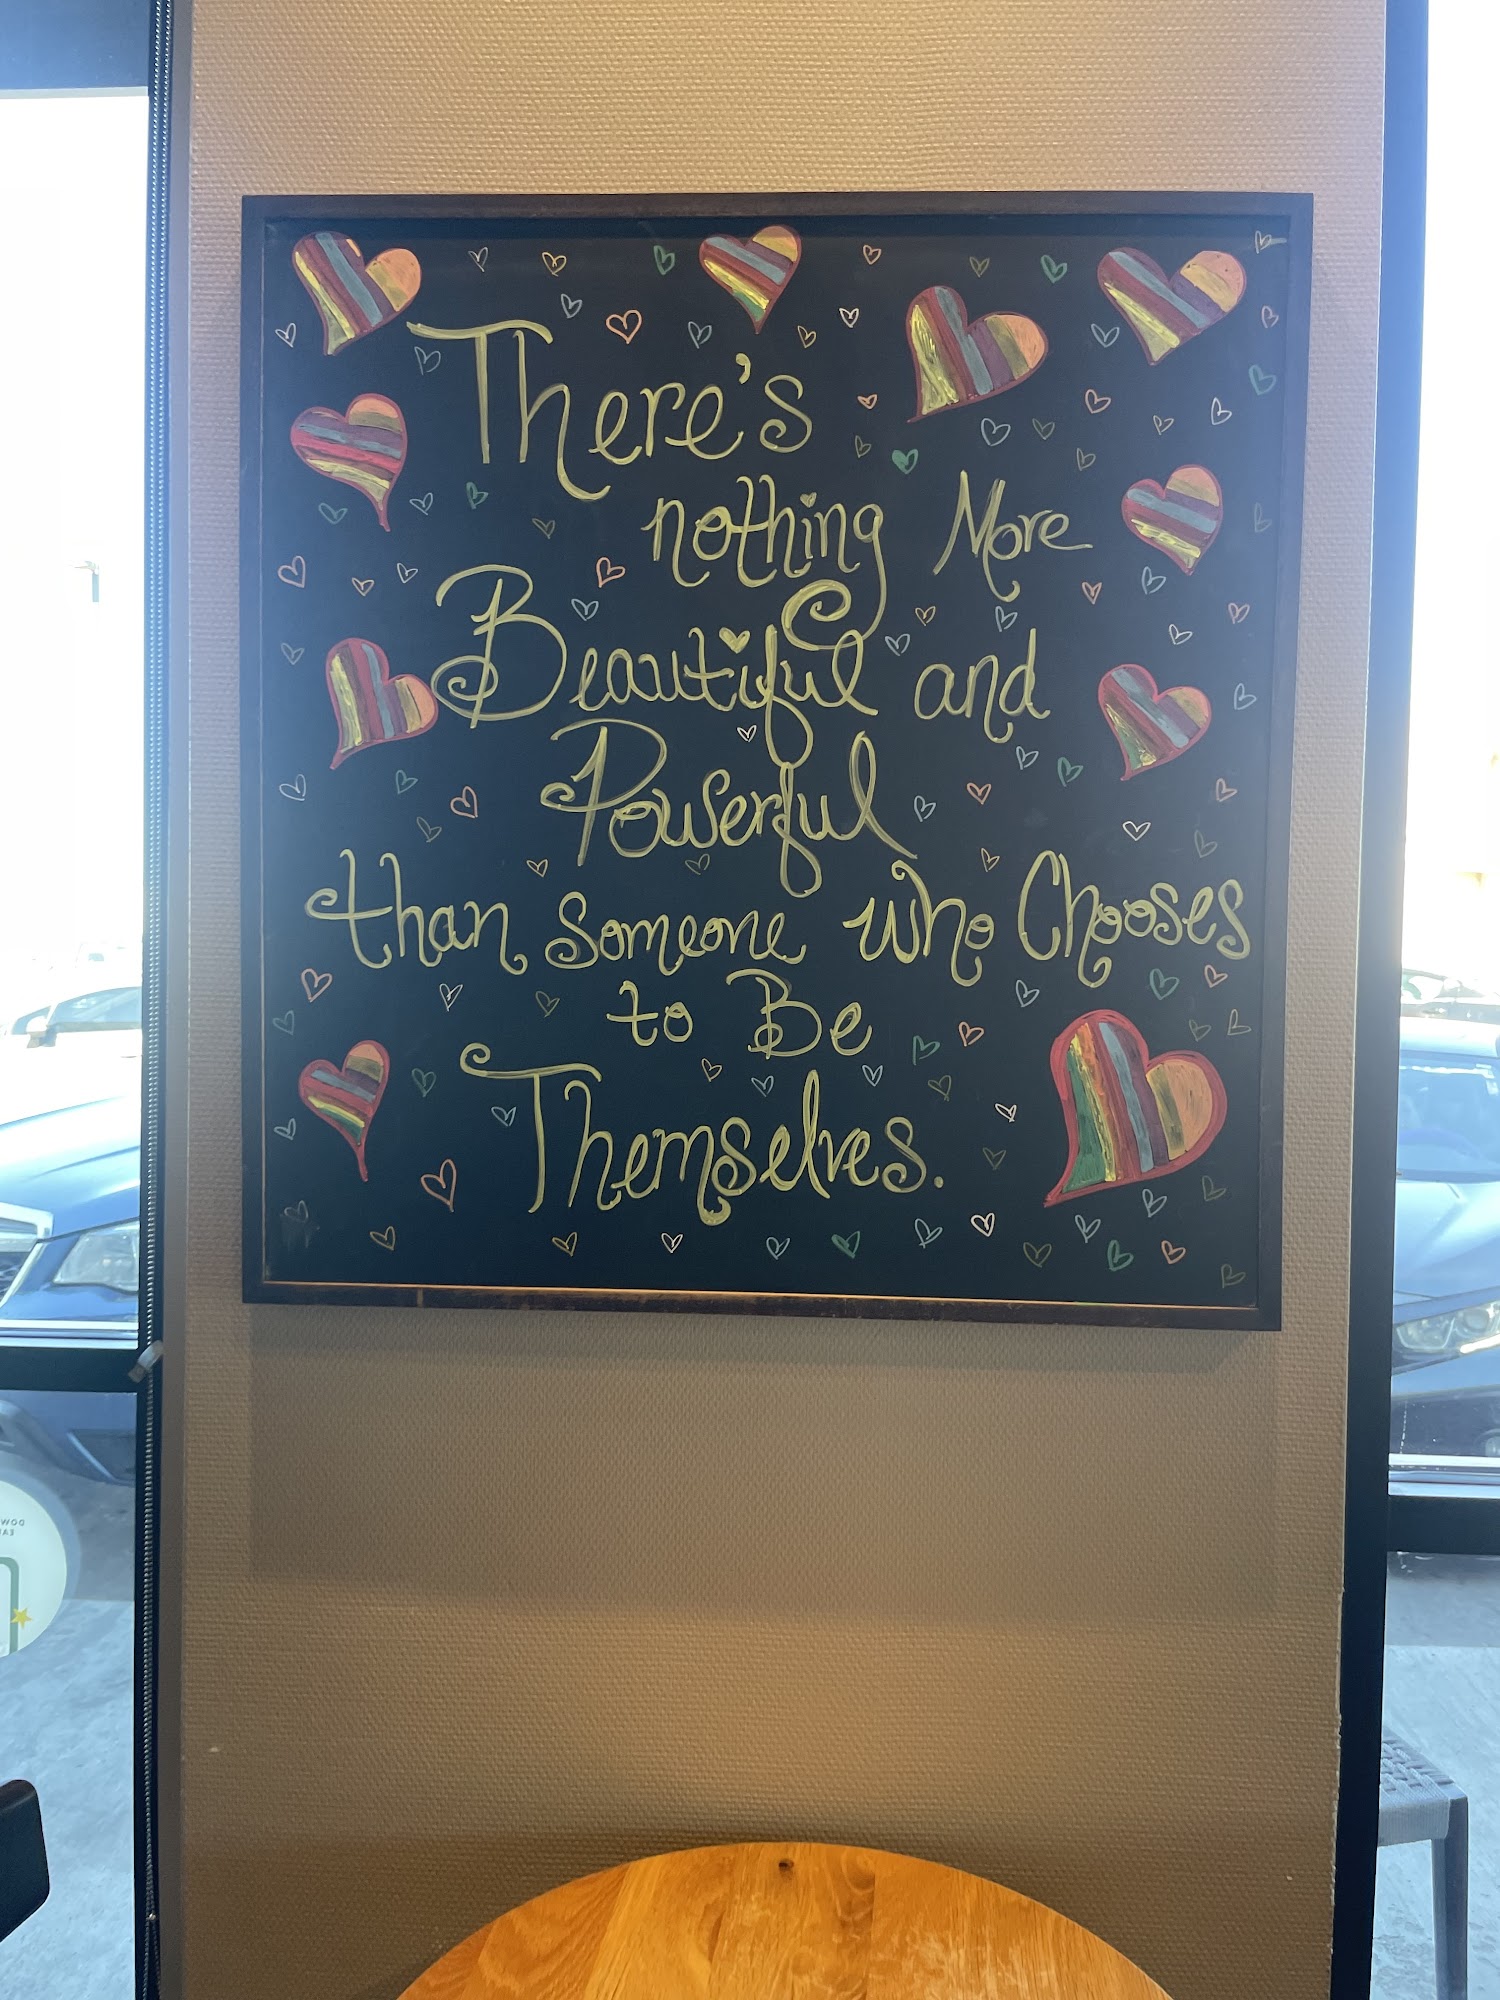 There's
nothing More
Beautiful and
Powerful
than someone who Chooses
to Be
Themselves.